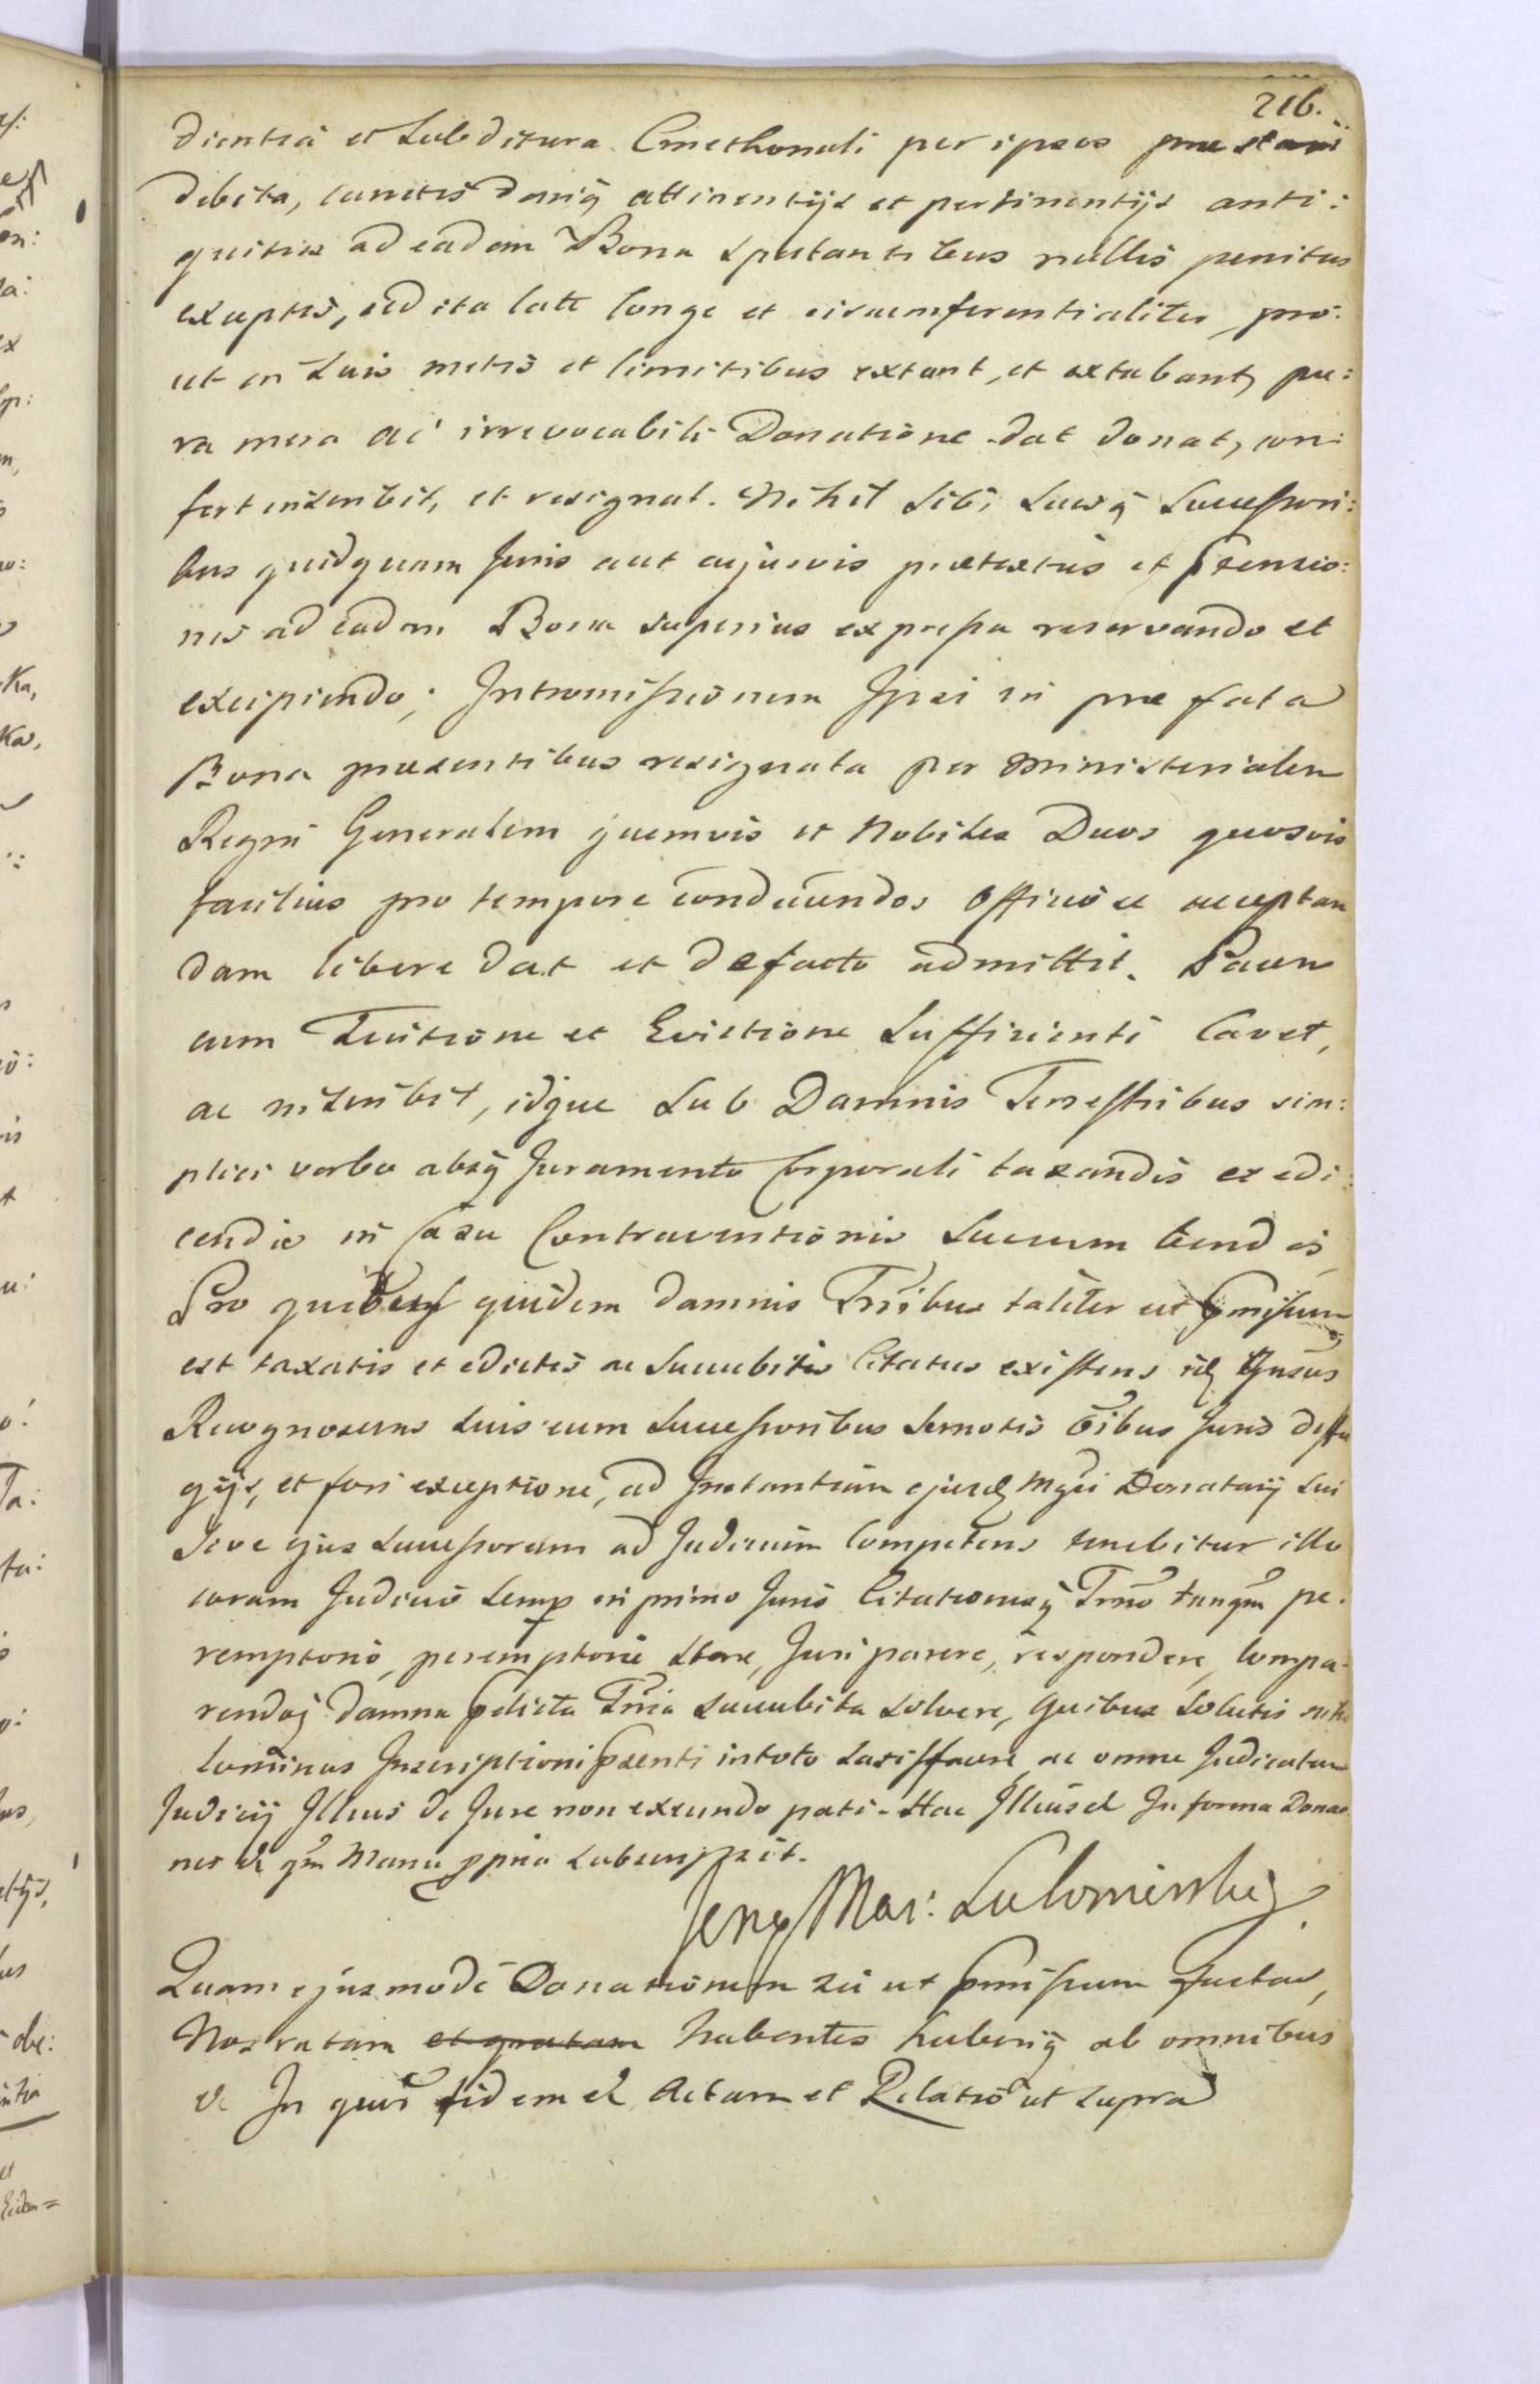 216.
dientia et Subditura Cmethonali per ipsos praestari
debita, cunctis deniq attinentijs et pertinentijs anti:
quitus ad eadem Bona spectantibus nullis penitus
exceptis, sed ita late longe et circumferentialiter, pro:
ut in suis metis et limitibus extant, et extabant, pu:
ra mera ac irrevocabili Donatione dat donat, con:
fert inscribit, et resignat. Nihil Sibi Suisq Successori:
bus quidquam Juris aut cujusvis praetextus et Ptensio:
nis ad eadem Bona superius expressa reservando et
excipiendo; Intromissionem Ipsi in praefata
Bona praesentibus resignata per Ministerialem
Regni Generalem quemvis et Nobiles Duos quosvis
facilius pro tempore conducendos Officiose acceptan
dam libere dat et de facto admittit. Pacem
cum Tuitione et Evictione Sufficienti Cavet,
ac inscribit, idque Sub Damnis Terrestribus sim:
plici verbo absq Juramento Corporali taxandis et edi:
cendis in Casu Contraventionis Succumbendis
Pro quibus quidem damnis Trribus taliter ut pmissum
est taxatis et edictis ac Succubitis Citatus existens idq Ipnsus
Recognoscens Suis cum Successoribus Semotis oibus Juris diffu
gijs, et fori exceptione, ad Instantiam ejusd Mgci Donatarij Sui
Sive ejus Successorum ad Judicium Competens tenebitur illo
coram Judicio Semp in primo Juris Citationisq Trno tanqm pe:
remptorio, peremptorie Stare, Juri parere, respondere, Compa:
rendoq Damna pdicta Trria Succubita Solvere, Quibus Solutis nihi
lominus Inscriptioni Psenti in toto Satisfacere ac omne Judicatum
Judicij Illius de Jure non exeundo pati. Hac Illius et In forma Donao
nis &c qm Manu ppria Subscripsit.
Jerzy Mar: Lubomirskij
Quam ejusmodi Donationem sic ut pmissum factam,
Nos ratam et gratam habentes haberiq ab omnibus
&c In cujus fidem &c Actum et Relatio ut supra